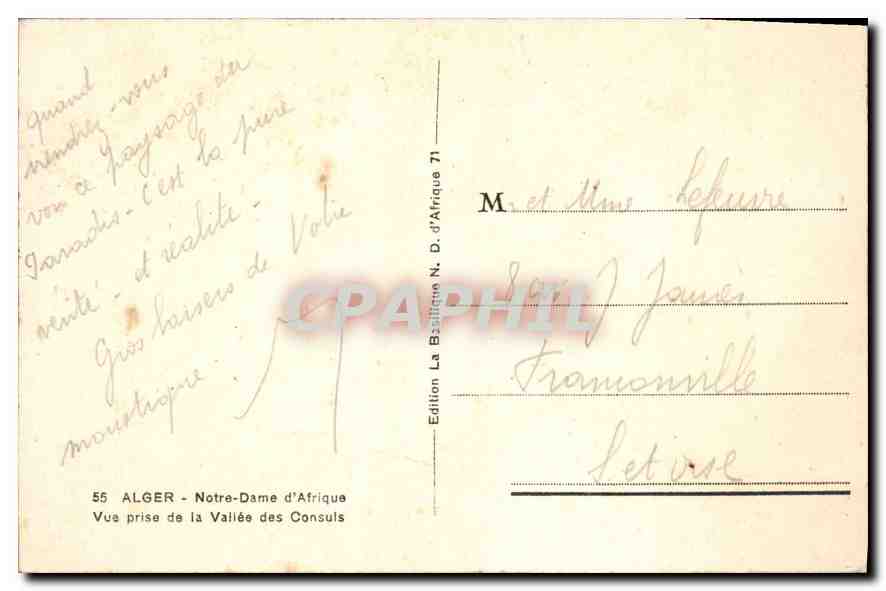 quand
viendrez-vous
voir ce paysage du
Paradis - C'est la pure
vérité - et réalité -
Gros baisers de Votre
moustique.
55 ALGER - Notre-Dame d'Afrique
Vue prise de la Vallée des Consuls
Edition La Basilique N. D. d'Afrique 71
CPAPHIL
M. et Mme Lefeuvre
8 J James
Franconville
S et Oise